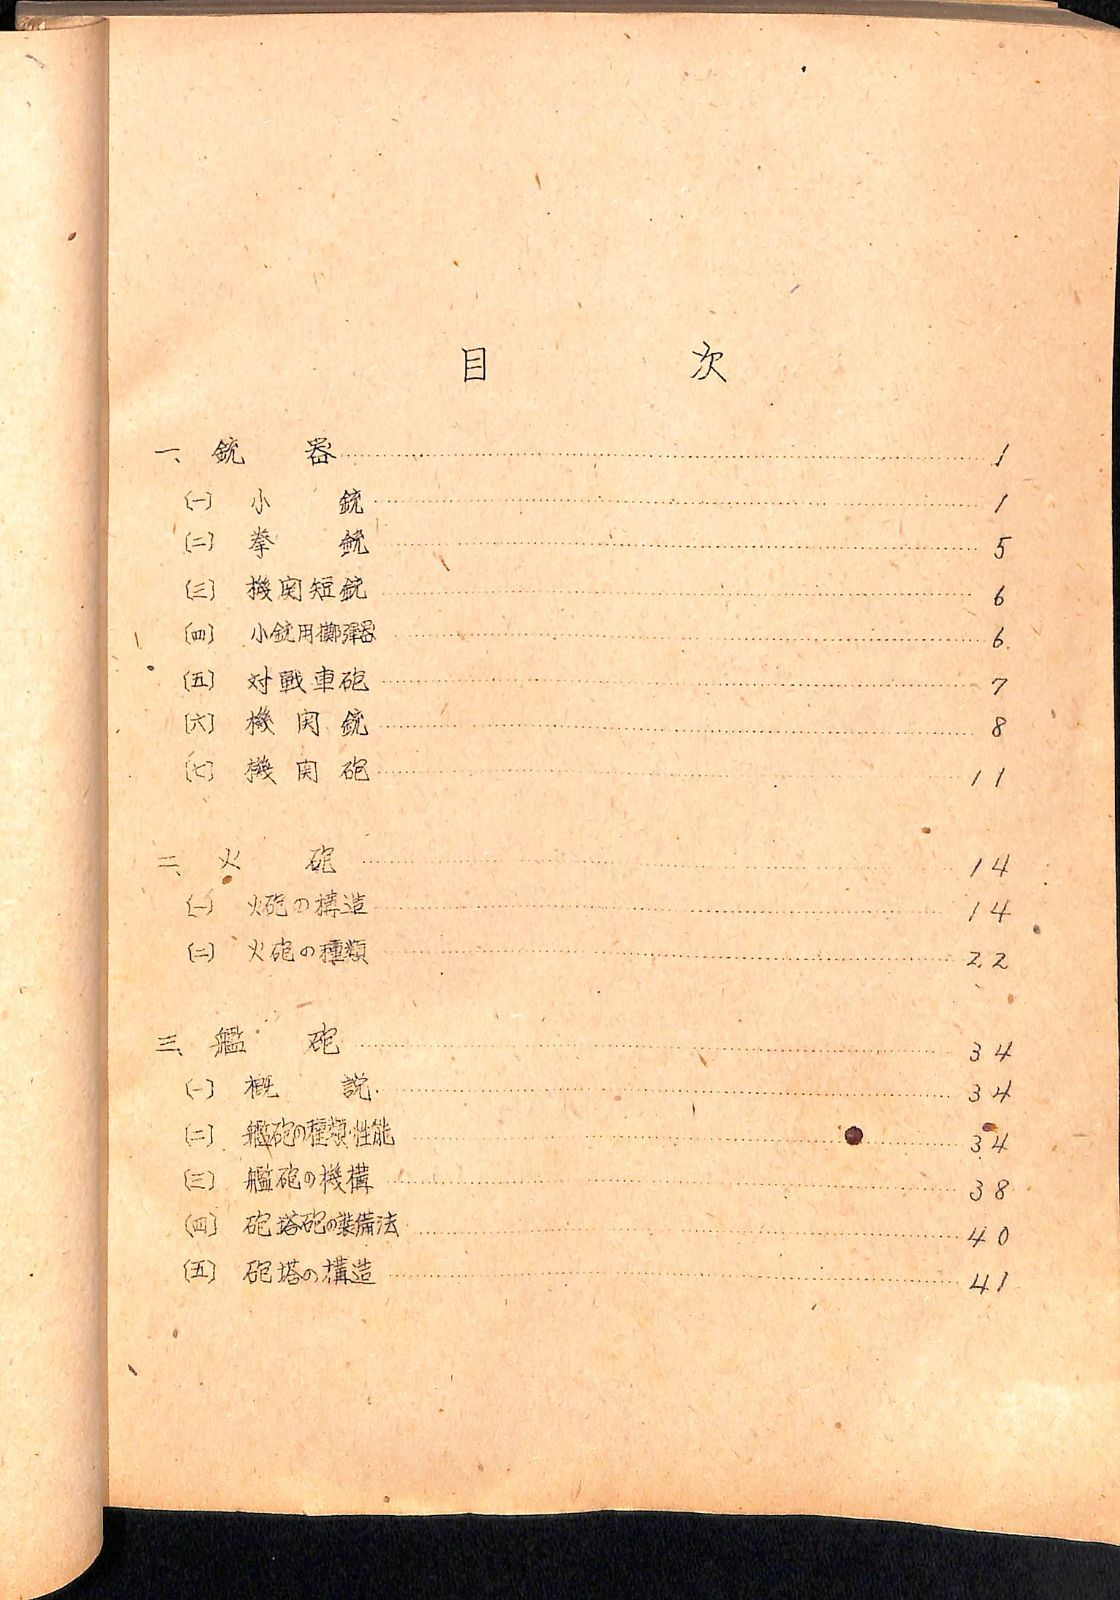 目次
一、銃器 1
〔一〕小銃 1
〔二〕拳銃 5
〔三〕機関短銃 6
〔四〕小銃用擲彈器 6
〔五〕対戦車砲 7
〔六〕機関銃 8
〔七〕機関砲 11
二、火砲 14
〔一〕火砲の構造 14
〔二〕火砲の種類 22
三、艦砲 34
〔一〕概説 34
〔二〕艦砲の種類・性能 34
〔三〕艦砲の機構 38
〔四〕砲塔砲の装備法 40
〔五〕砲塔の構造 41